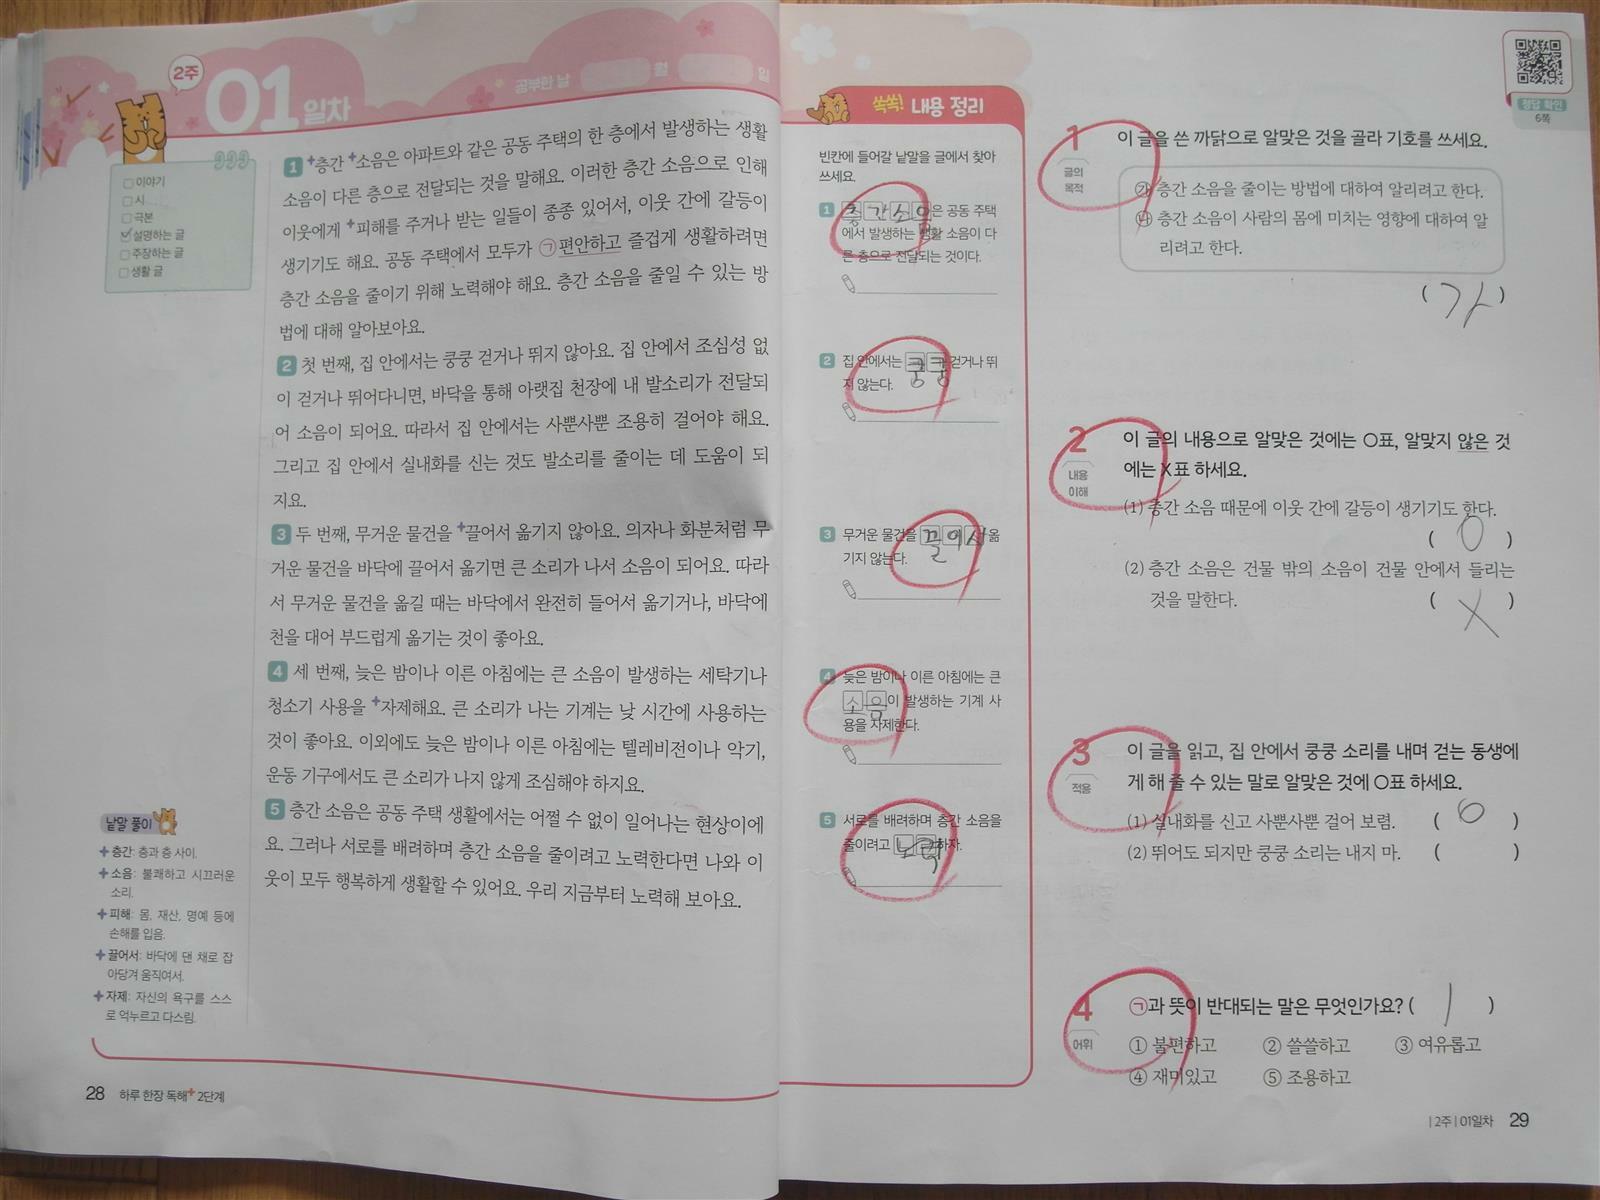 2주
01일차
공부한 날 월 일
이야기
시
극본
설명하는 글
주장하는 글
생활 글
1 +층간 +소음은 아파트와 같은 공동 주택의 한 층에서 발생하는 생활
소음이 다른 층으로 전달되는 것을 말해요. 이러한 층간 소음으로 인해
이웃에게 +피해를 주거나 받는 일들이 종종 있어서, 이웃 간에 갈등이
생기기도 해요. 공동 주택에서 모두가 ㉠편안하고 즐겁게 생활하려면
층간 소음을 줄이기 위해 노력해야 해요. 층간 소음을 줄일 수 있는 방
법에 대해 알아보아요.
2 첫 번째, 집 안에서는 쿵쿵 걷거나 뛰지 않아요. 집 안에서 조심성 없
이 걷거나 뛰어다니면, 바닥을 통해 아랫집 천장에 내 발소리가 전달되
어 소음이 되어요. 따라서 집 안에서는 사뿐사뿐 조용히 걸어야 해요.
그리고 집 안에서 실내화를 신는 것도 발소리를 줄이는 데 도움이 되
지요.
3 두 번째, 무거운 물건을 +끌어서 옮기지 않아요. 의자나 화분처럼 무
거운 물건을 바닥에 끌어서 옮기면 큰 소리가 나서 소음이 되어요. 따라
서 무거운 물건을 옮길 때는 바닥에서 완전히 들어서 옮기거나, 바닥에
천을 대어 부드럽게 옮기는 것이 좋아요.
4 세 번째, 늦은 밤이나 이른 아침에는 큰 소음이 발생하는 세탁기나
청소기 사용을 +자제해요. 큰 소리가 나는 기계는 낮 시간에 사용하는
것이 좋아요. 이외에도 늦은 밤이나 이른 아침에는 텔레비전이나 악기,
운동 기구에서도 큰 소리가 나지 않게 조심해야 하지요.
5 층간 소음은 공동 주택 생활에서는 어쩔 수 없이 일어나는 현상이에
요. 그러나 서로를 배려하며 층간 소음을 줄이려고 노력한다면 나와 이
웃이 모두 행복하게 생활할 수 있어요. 우리 지금부터 노력해 보아요.
낱말 풀이
+층간: 층과 층 사이.
+소음: 불쾌하고 시끄러운
소리.
+피해: 몸, 재산, 명예 등에
손해를 입음.
+끌어서: 바닥에 댄 채로 잡
아당겨 움직여서.
+자제: 자신의 욕구를 스스
로 억누르고 다스림.
28 하루 한장 독해+ 2단계
쏙쏙! 내용 정리
빈칸에 들어갈 낱말을 글에서 찾아
쓰세요.
1 층간소음은 공동 주택
에서 발생하는 생활 소음이 다
른 층으로 전달되는 것이다.
2 집 안에서는 쿵쿵 걷거나 뛰
지 않는다.
3 무거운 물건을 끌어서 옮
기지 않는다.
4 늦은 밤이나 이른 아침에는 큰
소음이 발생하는 기계 사
용을 자제한다.
5 서로를 배려하며 층간 소음을
줄이려고 노력하자.
정답 확인
6쪽
1 이 글을 쓴 까닭으로 알맞은 것을 골라 기호를 쓰세요.
글의
목적
㉮ 층간 소음을 줄이는 방법에 대하여 알리려고 한다.
㉯ 층간 소음이 사람의 몸에 미치는 영향에 대하여 알
리려고 한다.
(가)
2 이 글의 내용으로 알맞은 것에는 O표, 알맞지 않은 것
에는 X표 하세요.
내용
이해
(1) 층간 소음 때문에 이웃 간에 갈등이 생기기도 한다.
( O )
(2) 층간 소음은 건물 밖의 소음이 건물 안에서 들리는
것을 말한다. ( X )
3 이 글을 읽고, 집 안에서 쿵쿵 소리를 내며 걷는 동생에
게 해 줄 수 있는 말로 알맞은 것에 O표 하세요.
적용
(1) 실내화를 신고 사뿐사뿐 걸어 보렴. ( O )
(2) 뛰어도 되지만 쿵쿵 소리는 내지 마. ( )
4 ㉠과 뜻이 반대되는 말은 무엇인가요? ( 1 )
어휘
① 불편하고 ② 쓸쓸하고 ③ 여유롭고
④ 재미있고 ⑤ 조용하고
| 2주 | 01일차 29